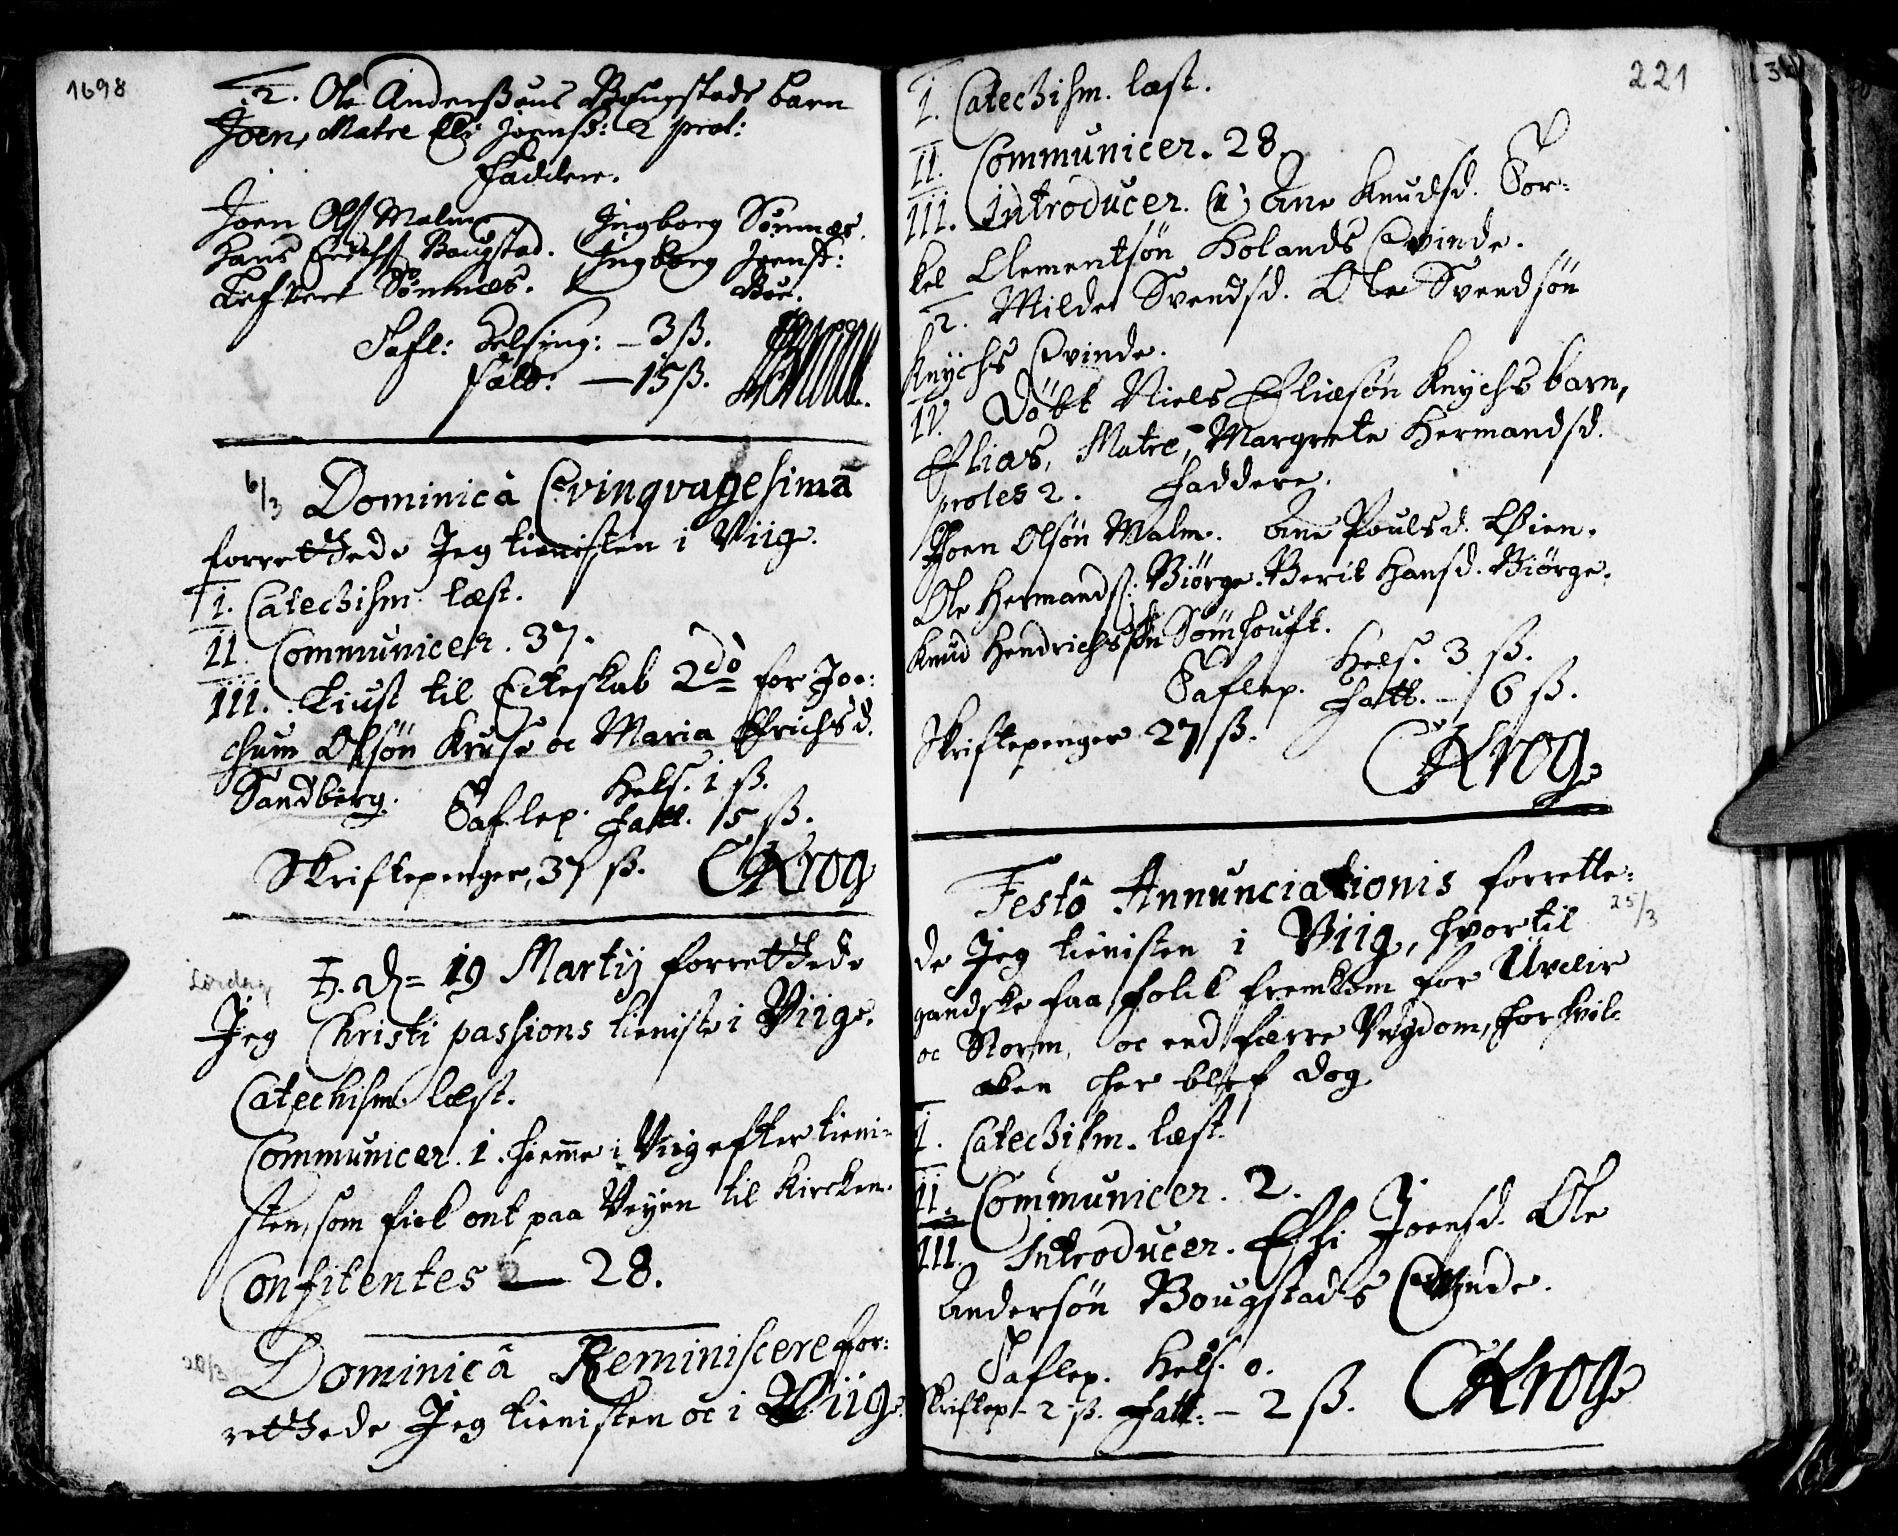 1698
2. Ole Anderßøns Bougstads barn
Joen, Matre Eli Joensd: 2 prol:
Faddere.
Joen Ols Malm Ingborg Sönnæs.
Hans Bougstad. Ingborg Joensd:
Sönnæs. Böe.
Tafl: Helsing: – 3 ß.
fatt: — 15 ß.
6/3 Dominicâ Qvinqvagesimâ
forrettede Jeg tienisten i Viig.
I. Catechism. læst.
II. Communicer. 37.
III. Liust til Ecteskab 2do for Joe:
chum Olsön Kruse oc Maria Erichsd.
Sandberg. Hels. 1 ß.
Taflep. fatt. 5 ß.
Skriftepenger, 37 ß. CKrog
Lördag
d. 19 Martij forrettede
Jeg Christi passions tieniste i Viig.
Catechism læst.
Communicer. 1. hiemme i Viig efter tieni-
sten, som fick ont paa Veyen til Kircken.
Confitentes — 28.
20/3
Dominicâ Reminiscere for:
rettede Jeg tienisten oc i Viig.
221
I. Catechism. læst.
II. Communicer. 28
III. Introducer. (1) Ane Knudsd. Tor:
kel Clementsön Holands Qvinde.
2. Mildri Svendsd. Ole Svendsön
Knychs Qvinde.
IV. Döbt Niels Eliæsön Knychs barn,
Elias, Matre, Margrete Hermandsd.
proles 2. Faddere.
Joen Olsön Malm. Ane Poulsd. Öien.
Ole Hermands: Biörge. Berit Hansd. Biörge.
Knud Hendrichssön Sömhouft.
Hels. 3 ß.
Taflep. fatt. – 6 ß.
Skriftepenger 27 ß.
CKrog
Festô Annunciationis forrette:
25/3
de Jeg tienisten i Viig, hvortil
gandske faa folck fremkom for Uveir
oc Storm, oc end færre Ungdom, for hvil-
cken her blef dog
I. Catechism. læst.
II. Communicer. 2.
III. Introducer. Elsi Joensd. Ole
Andersön Bougstads Qvinde.
Taflep. Hels. 0.
Skriftep – 2 ß. Fatt: – 2 ß. CKrog